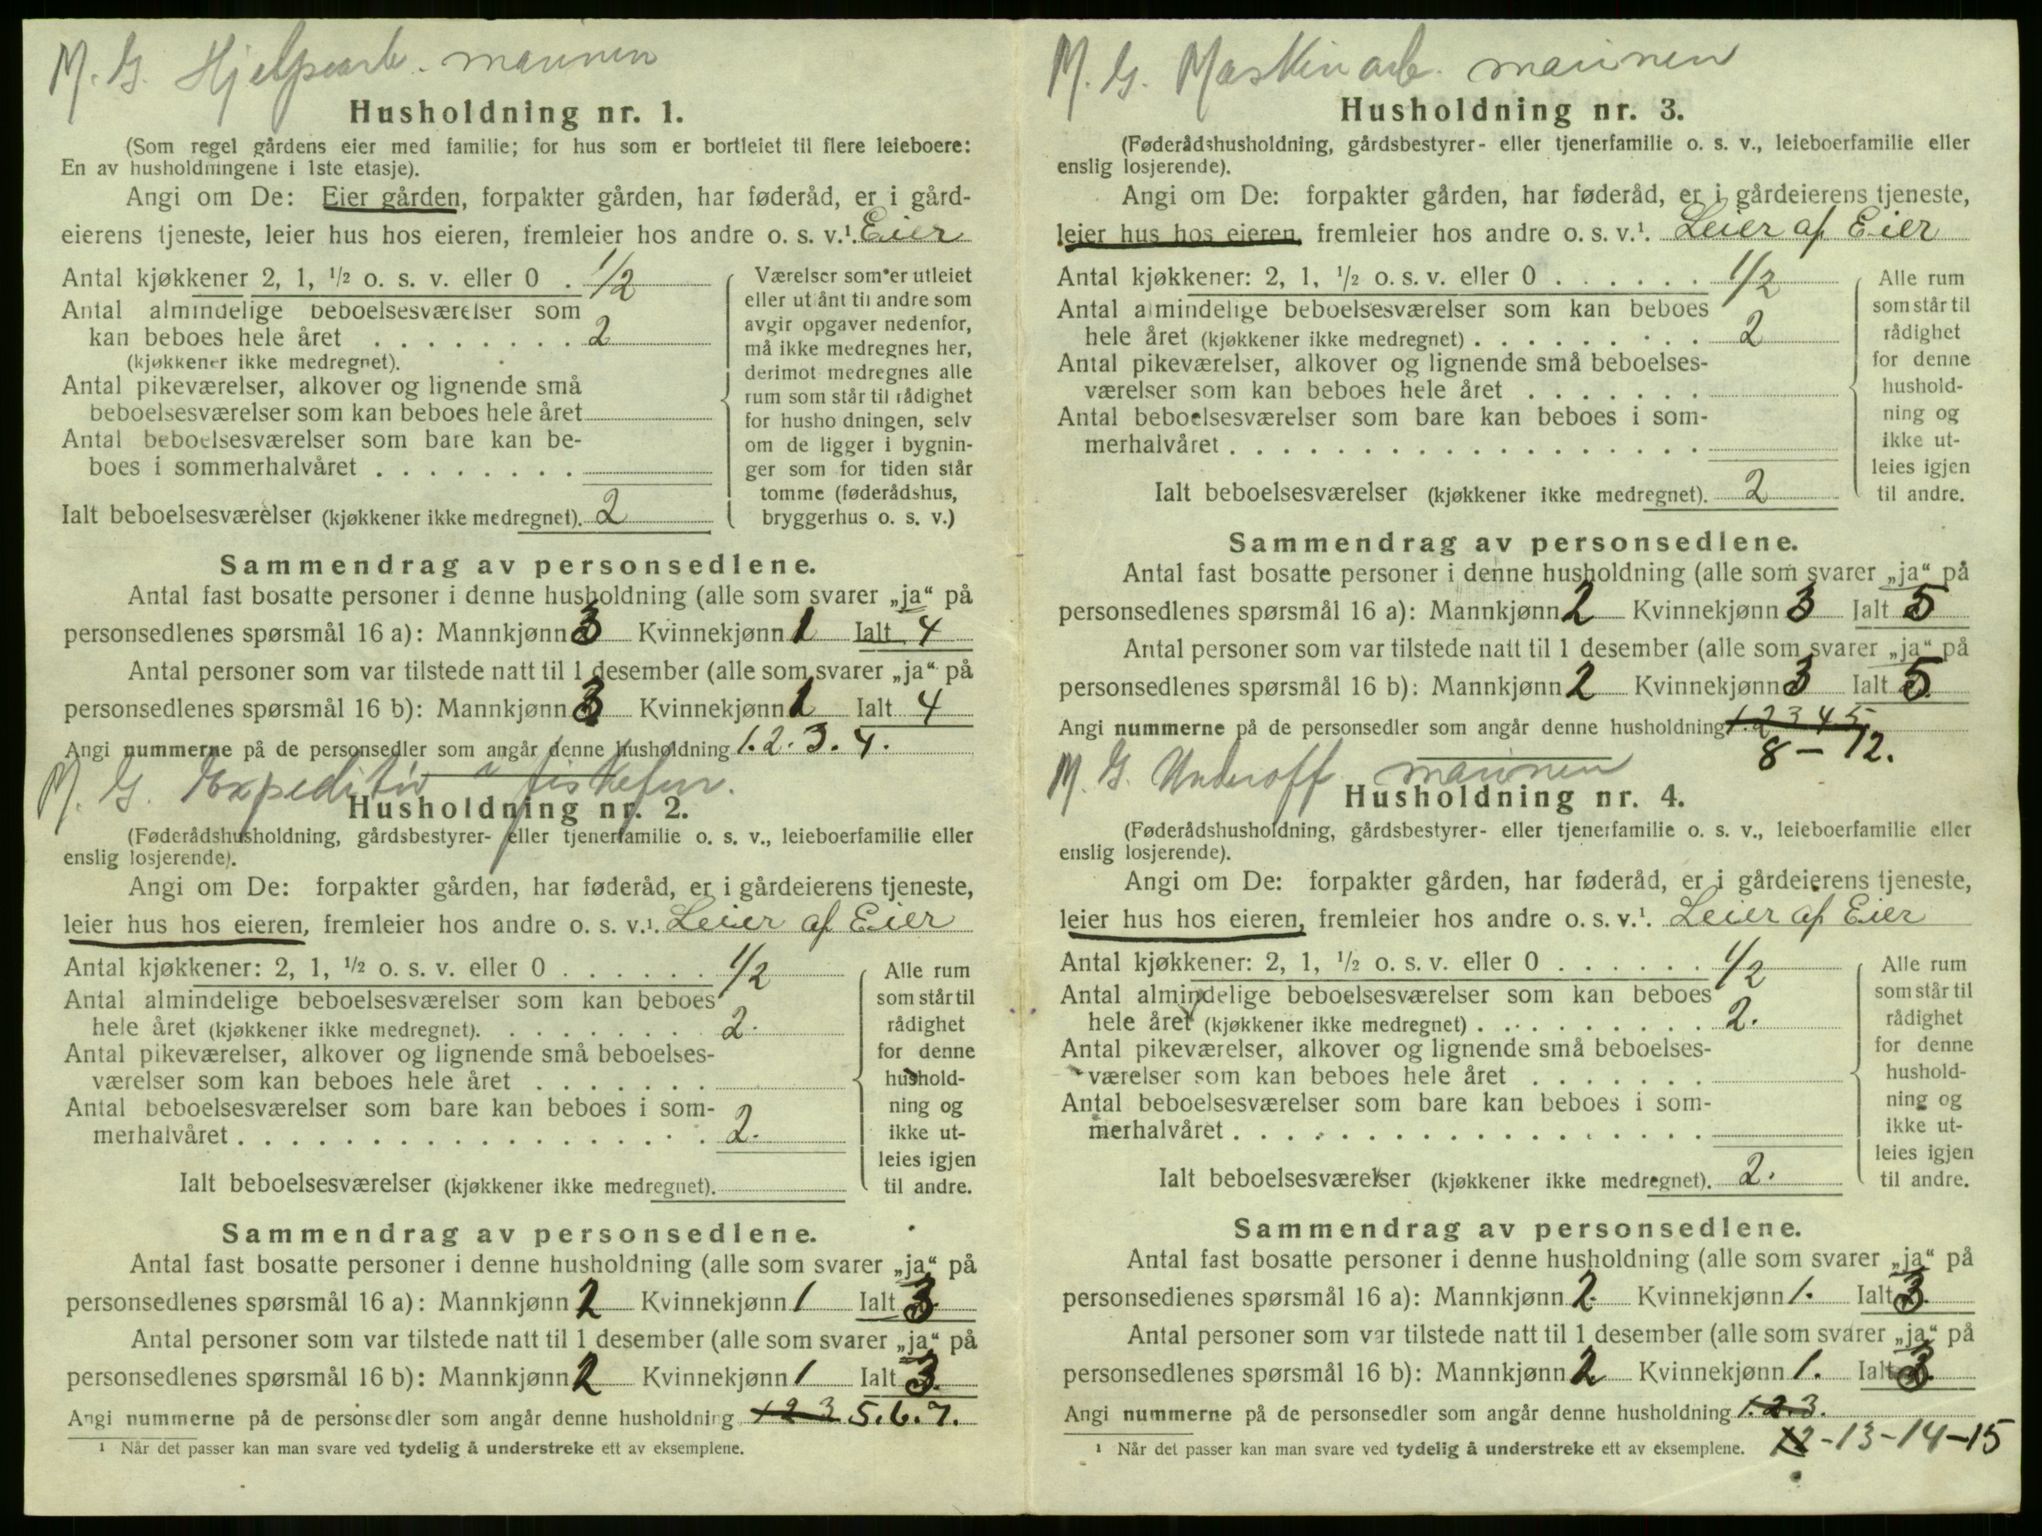 M. G. Hjelpearb. marinen
Husholdning nr. 1.
(Som regel gårdens eier med familie; for hus som er bortleiet til flere leieboere:
En av husholdningene i 1ste etasje).
Angi om De: Eier gården, forpakter gården, har føderåd, er i gård-
eierens tjeneste, leier hus hos eieren, fremleier hos andre o. s. v.¹. Eier
Antal kjøkkener 2, 1, ½ o. s. v. eller 0 . 1/2
Antal almindelige beboelsesværelser som
kan beboes hele året . . . . . . . . 2
(kjøkkener ikke medregnet).
Antal pikeværelser, alkover og lignende små
beboelsesværelser som kan beboes hele året
Antal beboelsesværelser som bare kan be-
boes i sommerhalvåret . . . . . . . .
Ialt beboelsesværelser (kjøkkener ikke medregnet). 2
Værelser som er utleiet
eller utlånt til andre som
avgir opgaver nedenfor,
må ikke medregnes her,
derimot medregnes alle
rum som står til rådighet
for husholdningen, selv
om de ligger i bygnin-
ger som for tiden står
tomme (føderådshus,
bryggerhus o. s. v.)
Sammendrag av personsedlene.
Antal fast bosatte personer i denne husholdning (alle som svarer „ja“ på
personsedlenes spørsmål 16 a): Mannkjønn 3 Kvinnekjønn 1 Ialt 4
Antal personer som var tilstede natt til 1 desember (alle som svarer „ja“ på
personsedlenes spørsmål 16 b): Mannkjønn 3 Kvinnekjønn 1 Ialt 4
Angi nummerne på de personsedler som angår denne husholdning 1. 2. 3. 4.
M. G. Expeditør fiskeforr.
Husholdning nr. 2.
(Føderådshusholdning, gårdsbestyrer- eller tjenerfamilie o. s. v., leieboerfamilie eller
enslig losjerende).
Angi om De: forpakter gården, har føderåd, er i gårdeierens tjeneste,
leier hus hos eieren, fremleier hos andre o. s. v.¹. Leier af Eier
Antal kjøkkener: 2, 1, ½ o. s. v. eller 0 . . . . . . 1/2
Antal almindelige beboelsesværelser som kan beboes
hele året (kjøkkener ikke medregnet). . . . . . . . . 2.
Antal pikeværelser, alkover og lignende små beboelses-
værelser som kan beboes hele året . . . . . . .
Antal beboelsesværelser som bare kan beboes i som-
merhalvåret . . . . . . . . . . . . . . . . . . 2.
Ialt beboelsesværelser (kjøkkener ikke medregnet).
Alle rum
som står til
rådighet
for denne
hushold-
ning og
ikke ut-
leies igjen
til andre.
Sammendrag av personsedlene.
Antal fast bosatte personer i denne husholdning (alle som svarer „ja“ på
personsedlenes spørsmål 16 a): Mannkjønn 2 Kvinnekjønn 1 Ialt 3.
Antal personer som var tilstede natt til 1 desember (alle som svarer „ja“ på
personsedlenes spørsmål 16 b): Mannkjønn 2 Kvinnekjønn 1 Ialt 3.
Angi nummerne på de personsedler som angår denne husholdning 1 2 3. 5. 6. 7.
¹ Når det passer kan man svare ved tydelig å understreke ett av eksemplene.
M. G. Maskinarb. marinen
Husholdning nr. 3.
(Føderådshusholdning, gårdsbestyrer- eller tjenerfamilie o. s. v., leieboerfamilie eller
enslig losjerende).
Angi om De: forpakter gården, har føderåd, er i gårdeierens tjeneste,
leier hus hos eieren, fremleier hos andre o. s. v.¹. Leier af Eier
Antal kjøkkener: 2, 1, ½ o. s. v. eller 0 . . . . . . 1/2
Antal almindelige beboelsesværelser som kan beboes
hele året (kjøkkener ikke medregnet) . . . . . . . . . 2
Antal pikeværelser, alkover og lignende små beboelses-
værelser som kan beboes hele året . . . . . . .
Antal beboelsesværelser som bare kan beboes i som-
merhalvåret . . . . . . . . . . . . . . . . . .
Ialt beboelsesværelser (kjøkkener ikke medregnet). 2
Alle rum
som står til
rådighet
for denne
hushold-
ning og
ikke ut-
leies igjen
til andre.
Sammendrag av personsedlene.
Antal fast bosatte personer i denne husholdning (alle som svarer „ja“ på
personsedlenes spørsmål 16 a): Mannkjønn 2 Kvinnekjønn 3 Ialt 5
Antal personer som var tilstede natt til 1 desember (alle som svarer „ja“ på
personsedlenes spørsmål 16 b): Mannkjønn 2 Kvinnekjønn 3 Ialt 5
Angi nummerne på de personsedler som angår denne husholdning 1 2 3 4 5
8 – 12.
M. G. Underoff. marinen
Husholdning nr. 4.
(Føderådshusholdning, gårdsbestyrer- eller tjenerfamilie o. s. v., leieboerfamilie eller
enslig losjerende).
Angi om De: forpakter gården, har føderåd, er i gårdeierens tjeneste,
leier hus hos eieren, fremleier hos andre o. s. v.¹. Leier af Eier
Antal kjøkkener: 2, 1, ½ o. s. v. eller 0 . . . . . . 1/2
Antal almindelige beboelsesværelser som kan beboes
hele året (kjøkkener ikke medregnet) . . . . . . . . . 2.
Antal pikeværelser, alkover og lignende små beboelses-
værelser som kan beboes hele året . . . . . . .
Antal beboelsesværelser som bare kan beboes i som-
merhalvåret . . . . . . . . . . . . . . . . . .
Ialt beboelsesværelser (kjøkkener ikke medregnet). 2.
Alle rum
som står til
rådighet
for denne
hushold-
ning og
ikke ut-
leies igjen
til andre.
Sammendrag av personsedlene.
Antal fast bosatte personer i denne husholdning (alle som svarer „ja“ på
personsedlenes spørsmål 16 a): Mannkjønn 2. Kvinnekjønn 1. Ialt 3.
Antal personer som var tilstede natt til 1 desember (alle som svarer „ja“ på
personsedlenes spørsmål 16 b): Mannkjønn 2. Kvinnekjønn 1. Ialt 3.
Angi nummerne på de personsedler som angår denne husholdning 1. 2. 3.
¹ Når det passer kan man svare ved tydelig å understreke ett av eksemplene. 12 - 13 - 14 - 15